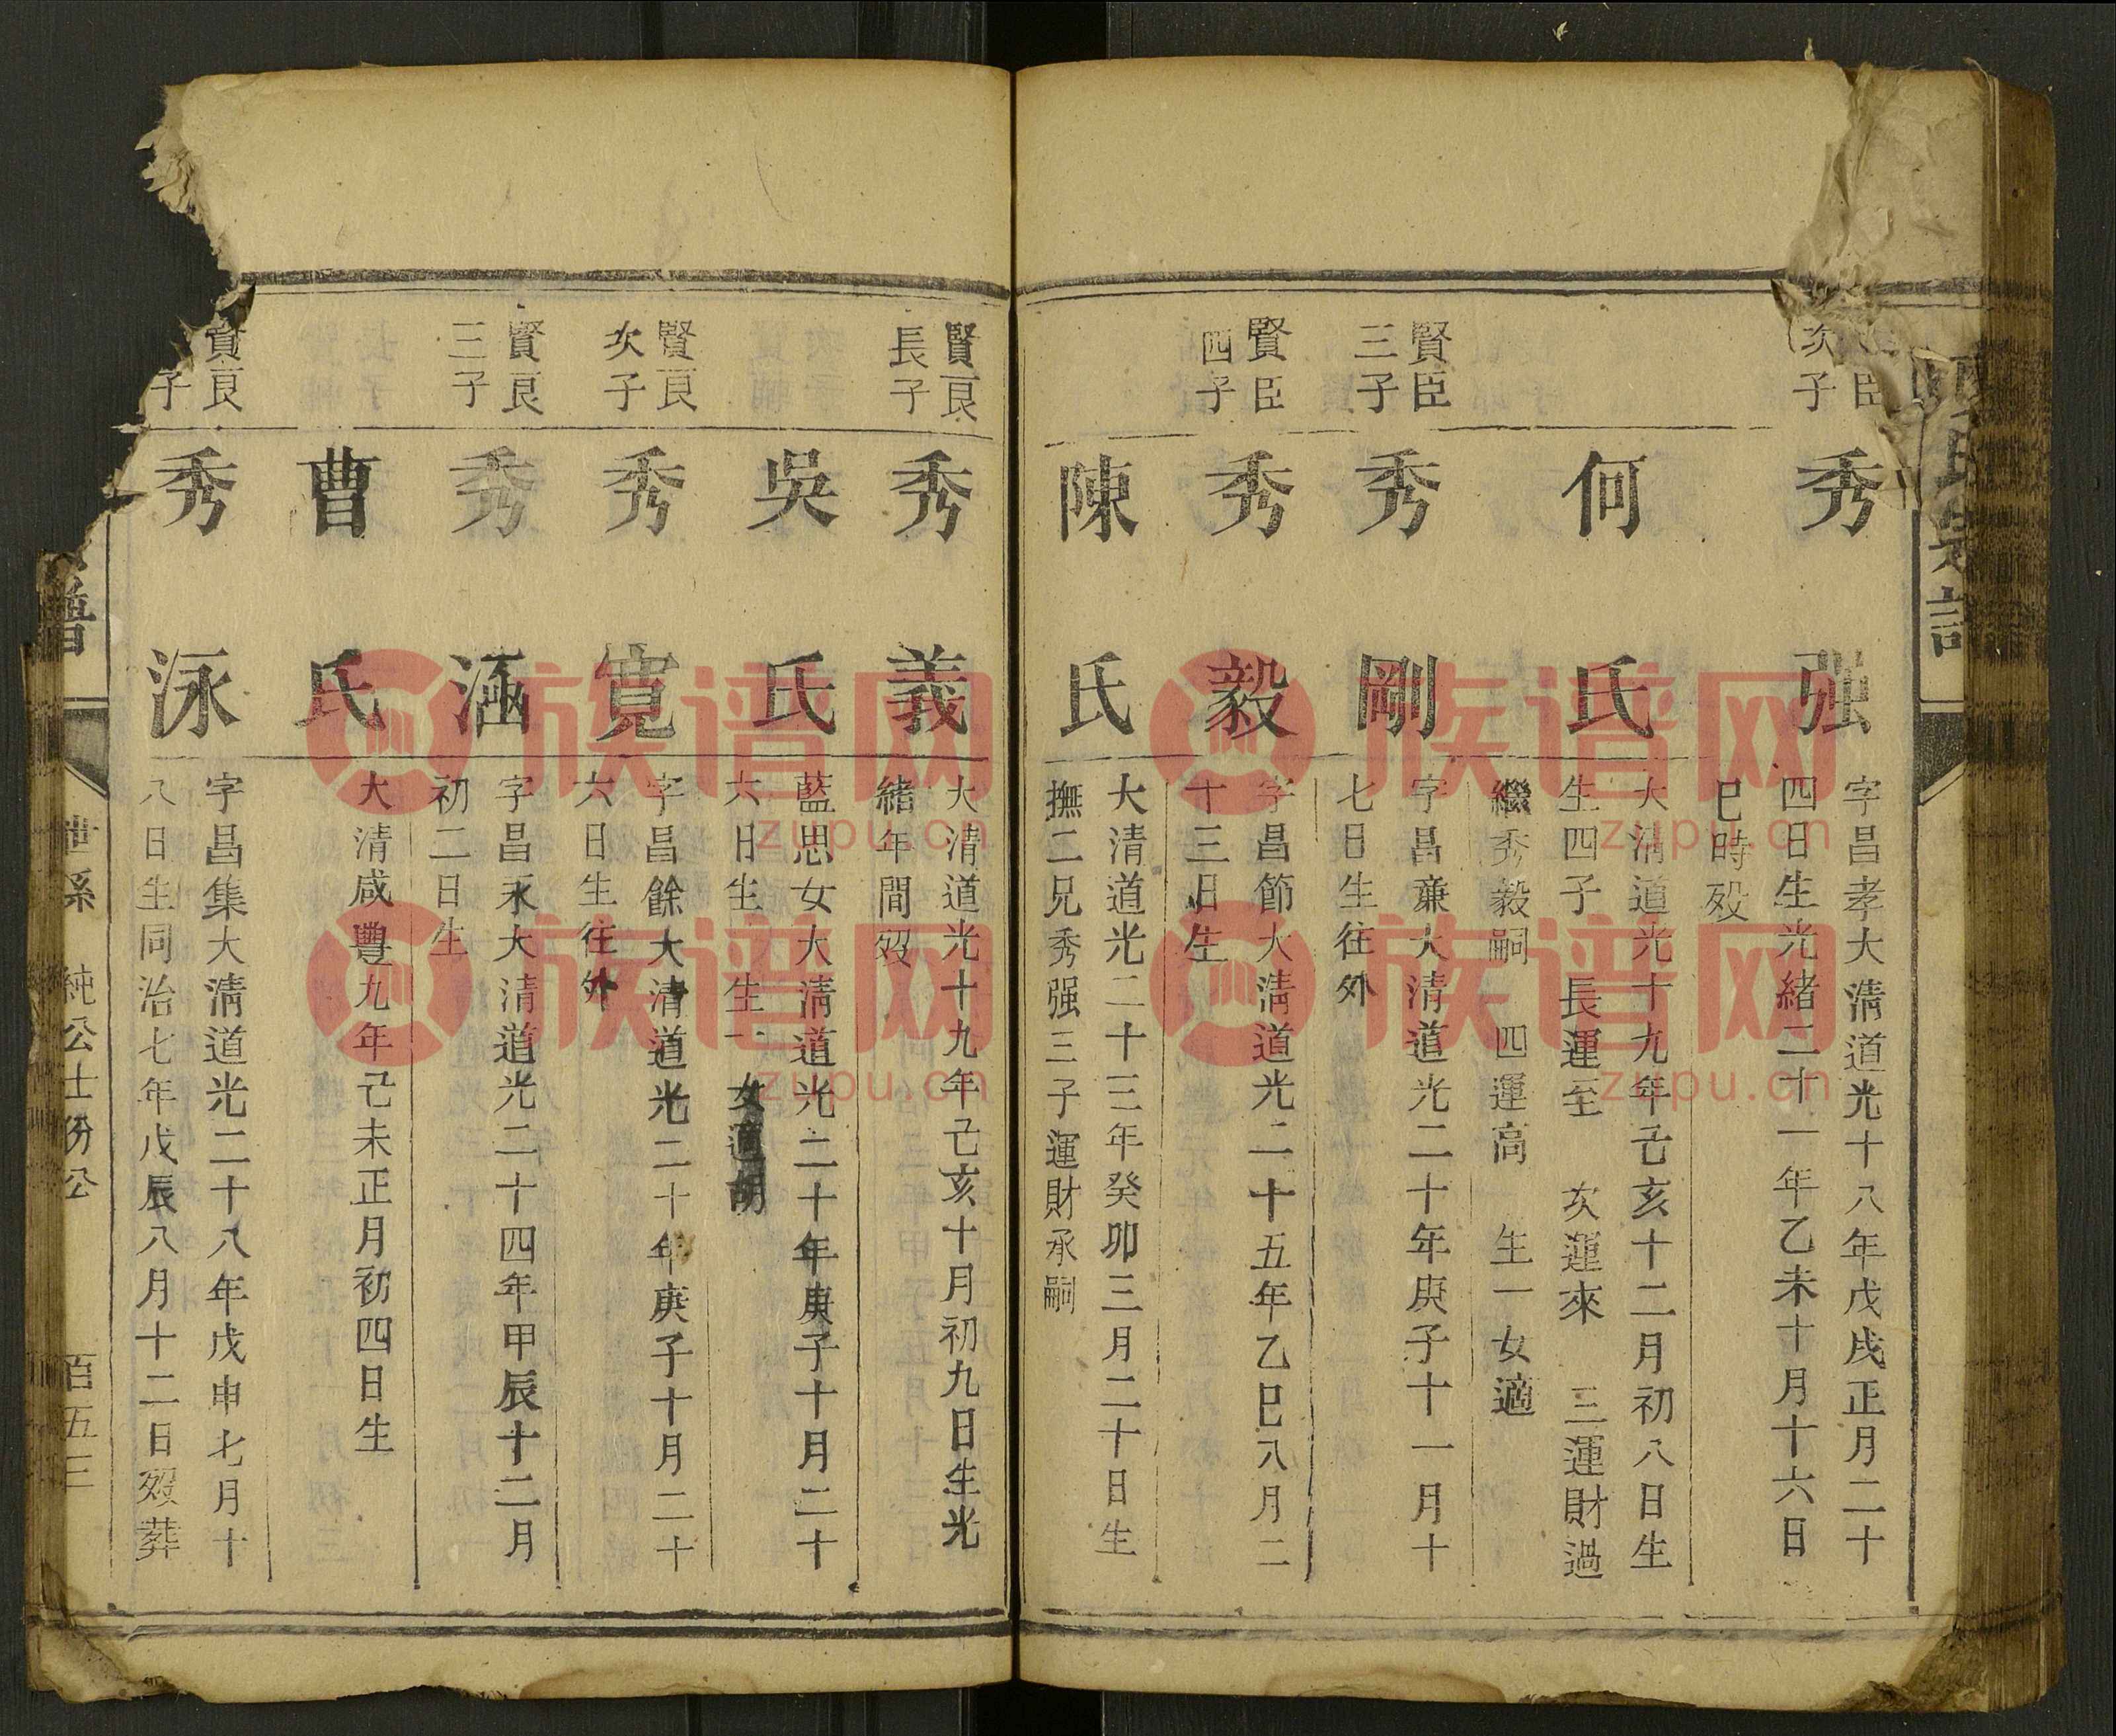 臣
次子
秀强
字昌孝大清道光十八年戊戌正月二十
四日生光緒二十一年乙未十月十六日
巳時殁
何氏
大清道光十九年己亥十二月初八日生
生四子 長運至 次運來 三運財過
繼秀毅嗣 四運高 生一女適
賢臣
三子
秀剛
字昌亷大清道光二十年庚子十一月十
七日生往外
賢臣
四子
秀毅
字昌節大清道光二十五年乙巳八月二
十三日生
陳氏
大清道光二十三年癸卯三月二十日生
撫二兄秀强三子運財承嗣
賢良
長子
秀義
大清道光十九年己亥十月初九日生光
緒年間殁
吳氏
藍思女大清道光二十年庚子十月二十
六日生 生一女適胡
賢良
次子
秀寛
字昌餘大清道光二十年庚子十月二十
六日生往外
賢良
三子
秀涵
字昌永大清道光二十四年甲辰十二月
初二日生
曹氏
大清咸豐九年己未正月初四日生
賢良
子
秀泳
字昌集大清道光二十八年戊申七月十
八日生同治七年戊辰八月十二日殁葬
譜
世系 純公士份公 百五三
族谱网
zupu.cn
族谱网
zupu.cn
族谱网
zupu.cn
族谱网
zupu.cn